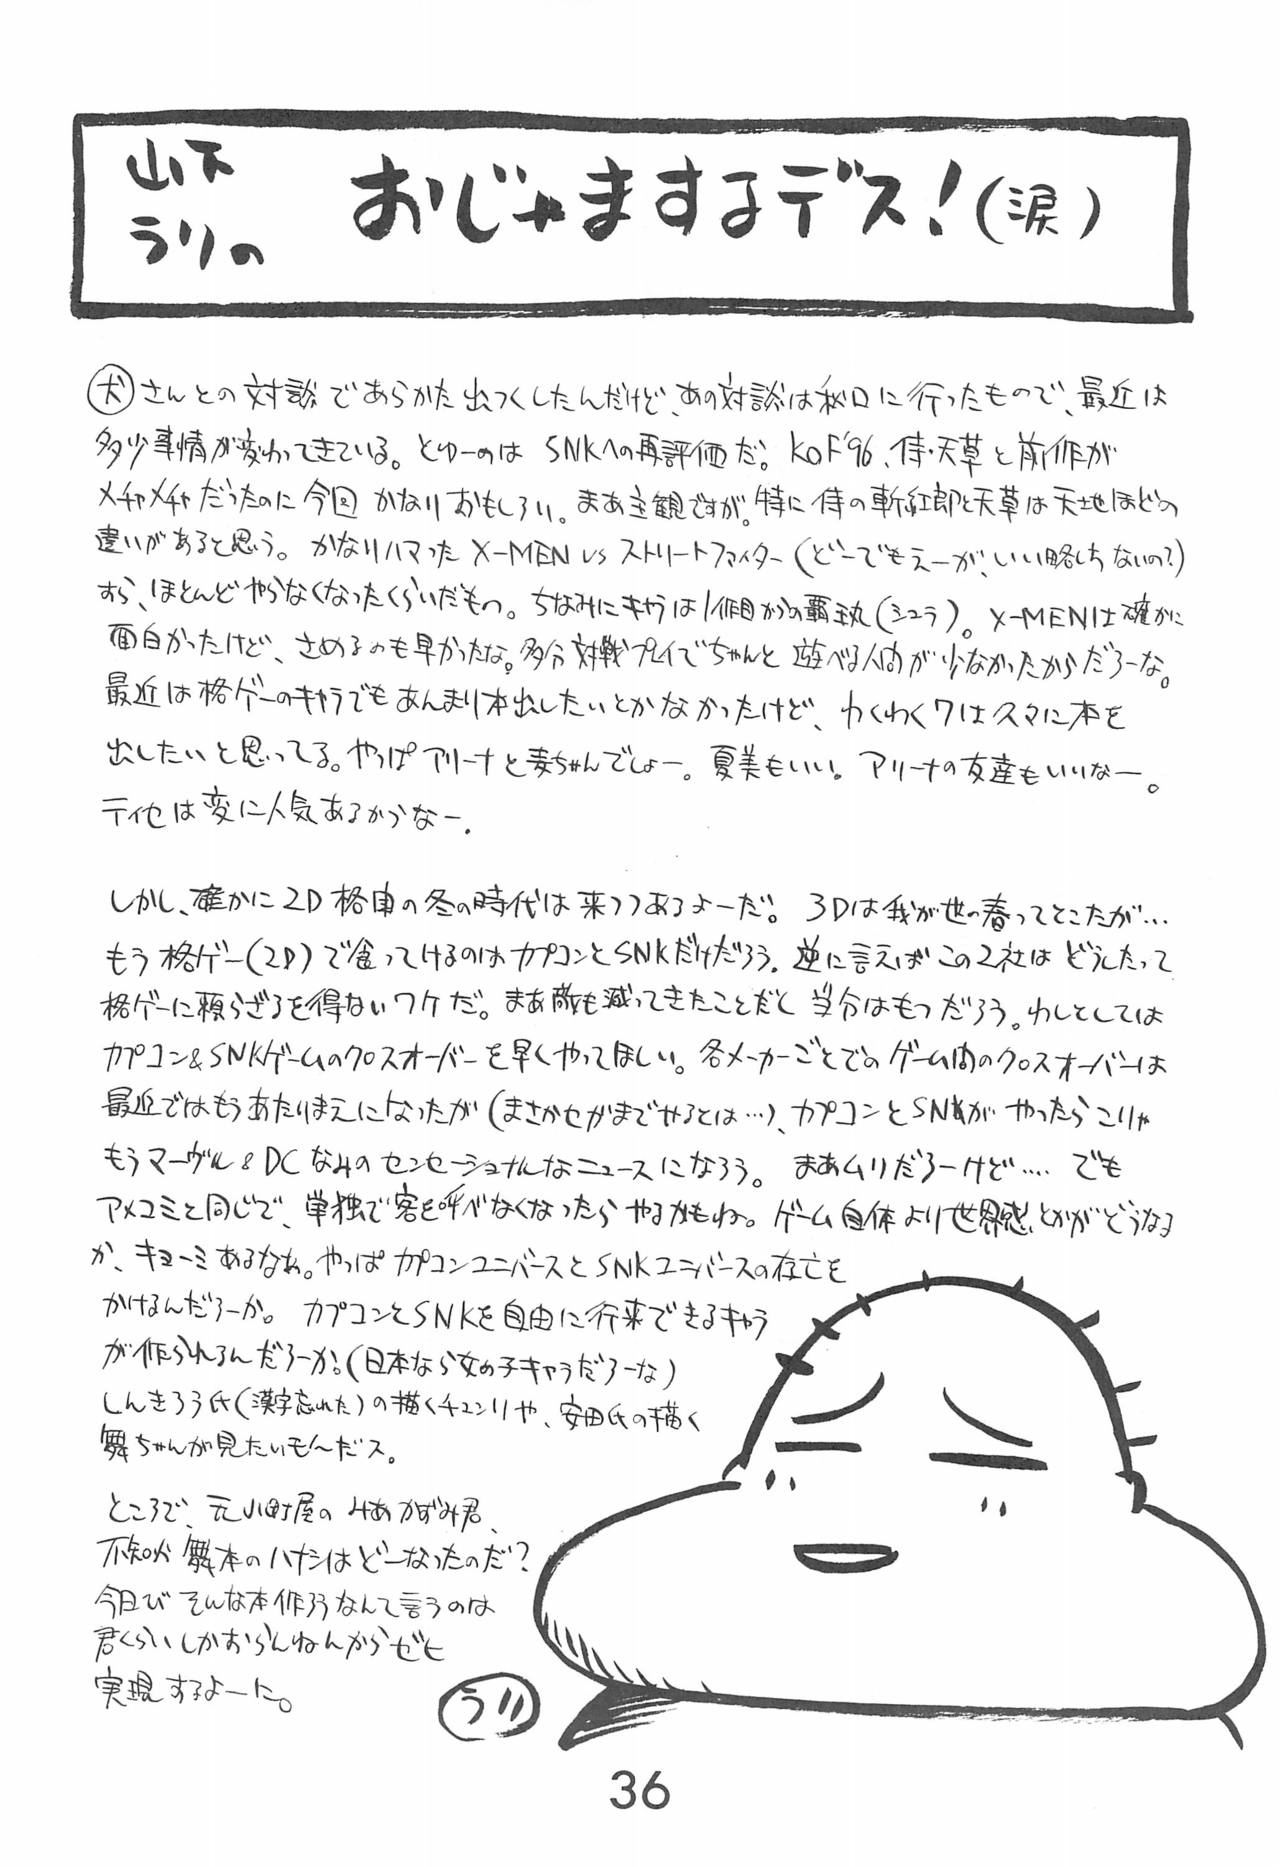 山下
うりの おじゃまするデス!(涙)
犬さんとの対談であらかた出つくしたんだけど、あの対談は秋口に行ったもので、最近は
多少事情が変わってきている。とゆーのは SNKへの再評価だ。KOF'96、侍・天草と前作が
メチャメチャだったのに今回かなりおもしろい。まあ主観ですが。特に侍の斬紅郎と天草は天地ほどの
違いがあると思う。かなりハマったX-MEN vs ストリートファイター(どーでもえーが、いい略しちないの?)
すら、ほとんどやらなくなったくらいだもの。ちなみにキャラは1作目からの覇王丸(シュラ)。X-MENは確かに
面白かったけど、さめるのも早かったな。多分対戦プレイでちゃんと遊べる人間が少なかったからだろーな。
最近は格ゲーのキャラでもあんまり本出したいとかなかったけど、わくわく7は久々に本を
出したいと思ってる。やっぱアリーナと麦ちゃんでしょー。夏美もいい。アリーナの友達もいいなー。
ティセは変に人気あるからなー.
しかし、確かに2D格闘の冬の時代は来つつあるよーだ。3Dは我が世の春ってとこだが…
もう格ゲー(2D)で食ってけるのはカプコンとSNKだけだろう. 逆に言えばこの2社はどうしたって
格ゲーに頼らざるを得ないワケだ。まあ敵も減ってきたことだし当分はもつだろう。わしとしては
カプコン&SNKゲームのクロスオーバーを早くやってほしい。各メーカーごとでのゲーム間のクロスオーバーは
最近ではもうあたりまえになったが(まさかセガまでやるとは…)、カプコンとSNKがやったらこりゃ
もうマーヴル&DCなみのセンセーショナルなニュースになろう。まあムリだろーけど…. でも
アメコミと同じで、単独で客を呼べなくなったらやるかもね。ゲーム自体より世界感とかがどうなる
か、キョーミあるなあ。やっぱカプコンユニバースとSNKユニバースの存亡を
かけるんだろーか。カプコンとSNKを自由に行来できるキャラ
が作られるんだろーか。(日本なら女の子キャラだろーな)
しんきろう氏(漢字忘れた)の描くチュンリや、安田氏の描く
舞ちゃんが見たいも〜だス。
ところで、元小町屋のみあかずみ君、
不知火舞本のハナシはどーなったのだ?
今日びそんな本作ろうなんて言うのは
君くらいしかおらんねんからゼヒ
実現するよーに。
うり
36